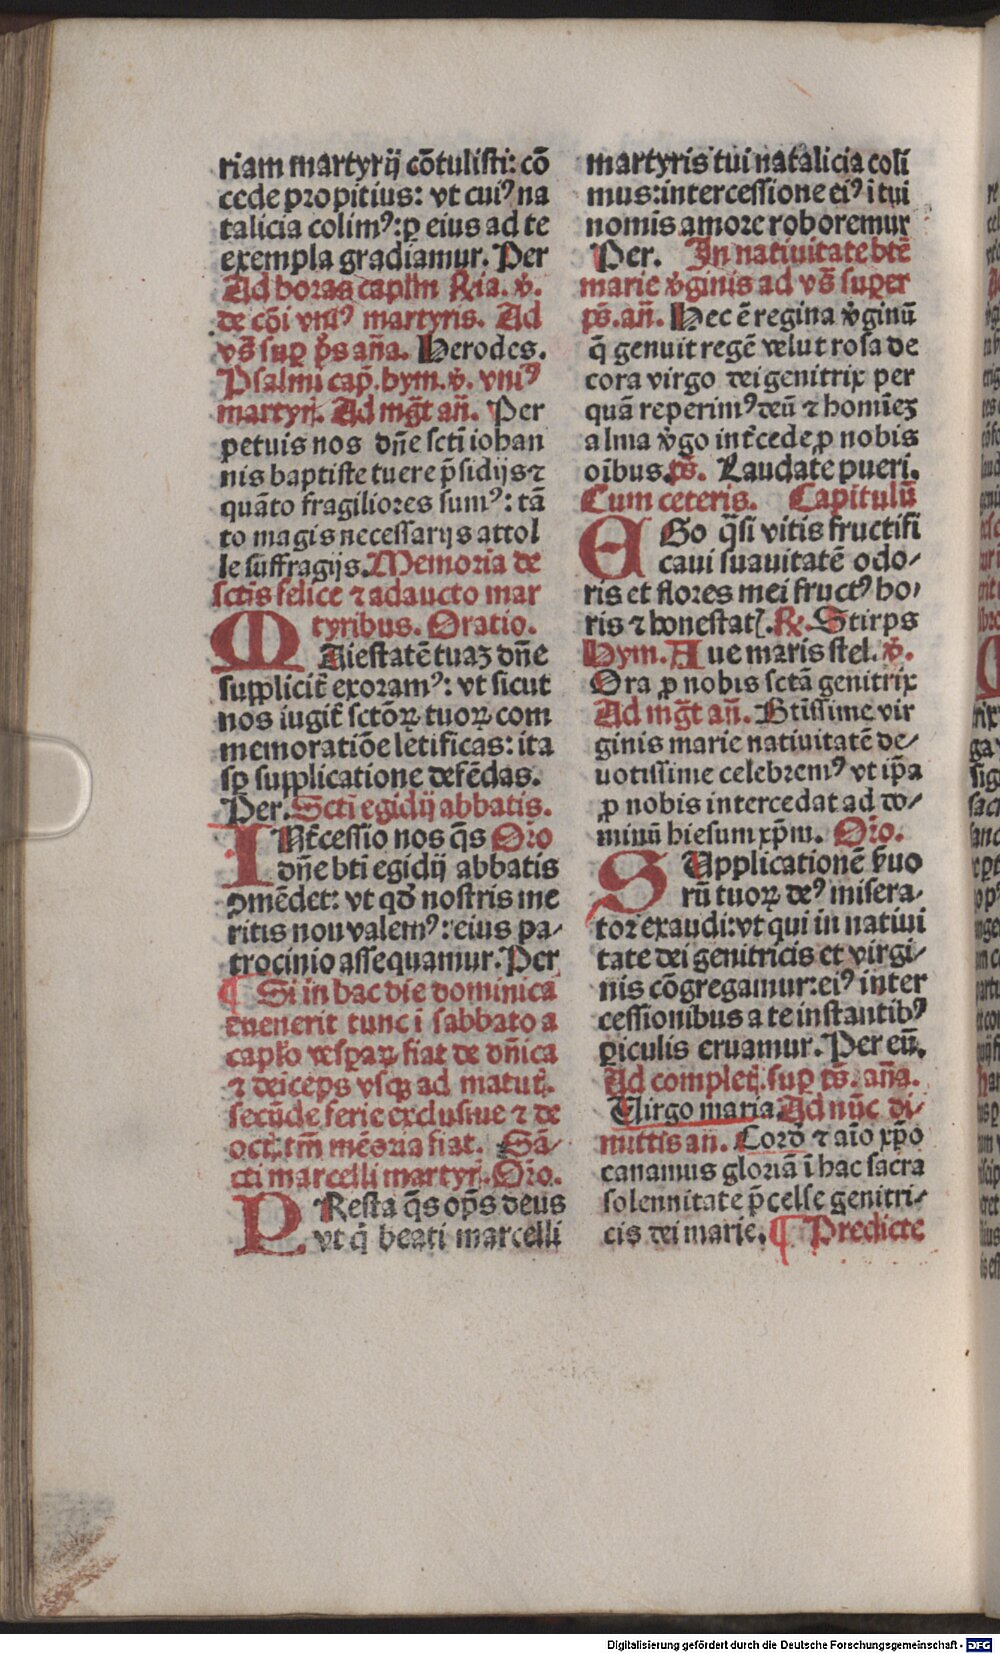 riam martyrij cōtulisti: cō
cede propitius: vt cuiꝰ na
talicia colimꝰ: ꝑ eius ad te
exempla gradiamur. Per
Ad horas caplm̄ Ria. v̓.
de cōi vniꝰ martyris. Ad
vs̄ suꝑ p̄s aña. Herodes.
Psalmi cap̄. hym. v̓. vniꝰ
martyri. Ad mḡt an̄. Per
petuis nos dn̄e scti iohan
nis baptiste tuere p̄sidijs ⁊
quāto fragiliores sumꝰ: tā
to magis necessarijs attol
le suffragijs. Memoria de
sctis felice ⁊ adaucto mar
tyribus. Oratio.
MAiestatē tuaꝫ dn̄e
supplicit̄ exoramꝰ: vt sicut
nos iugit̄ sctōꝝ tuoꝝ com
memoratiōe letificas: ita
sꝑ supplicatione defēdas.
Per. Scti egidij abbatis.
INt̄cessio nos q̄s Oro
dn̄e bti egidij abbatis
ꝯmēdet: vt qd̓ nostris me
ritis non valemꝰ: eius pa-
trocinio assequamur. Per
¶ Si in hac die dominica
euenerit tunc ī sabbato a
capl̓o vesꝑaꝝ fiat de dn̄ica
⁊ deiceps vsqꝫ ad matuti.
secūde ferie exclusiue ⁊ de
oct. tm̄ mēoria fiat. Sā-
cti marcelli martyr. Or̄o.
PResta q̄s op̄s deus
vt q̄ beati marcelli
martyris tui natalicia coli
mus: intercessione eiꝰ ī tui
nomis amore roboremur
Per. In natiuitate btē
marie v̓ginis ad vs̄ super
ps̄. an̄. Hec ē regina v̓ginū
q̄ genuit regē velut rosa de
cora virgo dei genitrix per
quā reperimꝰ deū ⁊ homīeꝫ
alma v̓go int̄cede ꝓ nobis
oībus. ps̄. Laudate pueri.
Cum ceteris. Capitulū
EGo q̄si vitis fructifi
caui suauitatē odo-
ris et flores mei fructꝰ ho-
ris ⁊ honestat. R. Stirps
Hym. Aue maris stel. v̓.
Ora ꝓ nobis sctā genitrix
Ad mḡt an̄. Btissime vir
ginis marie natiuitatē de-
uotissime celebremꝰ vt ip̄a
ꝓ nobis intercedat ad do-
minū hiesum xp̄m. Or̄o.
SUpplicationē v̓uo
rū tuoꝝ deꝰ misera-
tor exaudi: vt qui in natiui
tate dei genitricis et virgi-
nis cōgregamur: eiꝰ inter
cessionibus a te instantibꝰ
ꝑiculis eruamur. Per eū.
Ad completi. suꝑ ps̄. aña.
Uirgo maria. Ad nūc di-
mittis an̄. Cord̓ ⁊ aīo xp̄o
canamus gloriā ī hac sacra
solennitate p̄celse genitri-
cis dei marie. ¶ Predicte
Digitalisierung gefördert durch die Deutsche Forschungsgemeinschaft - DFG